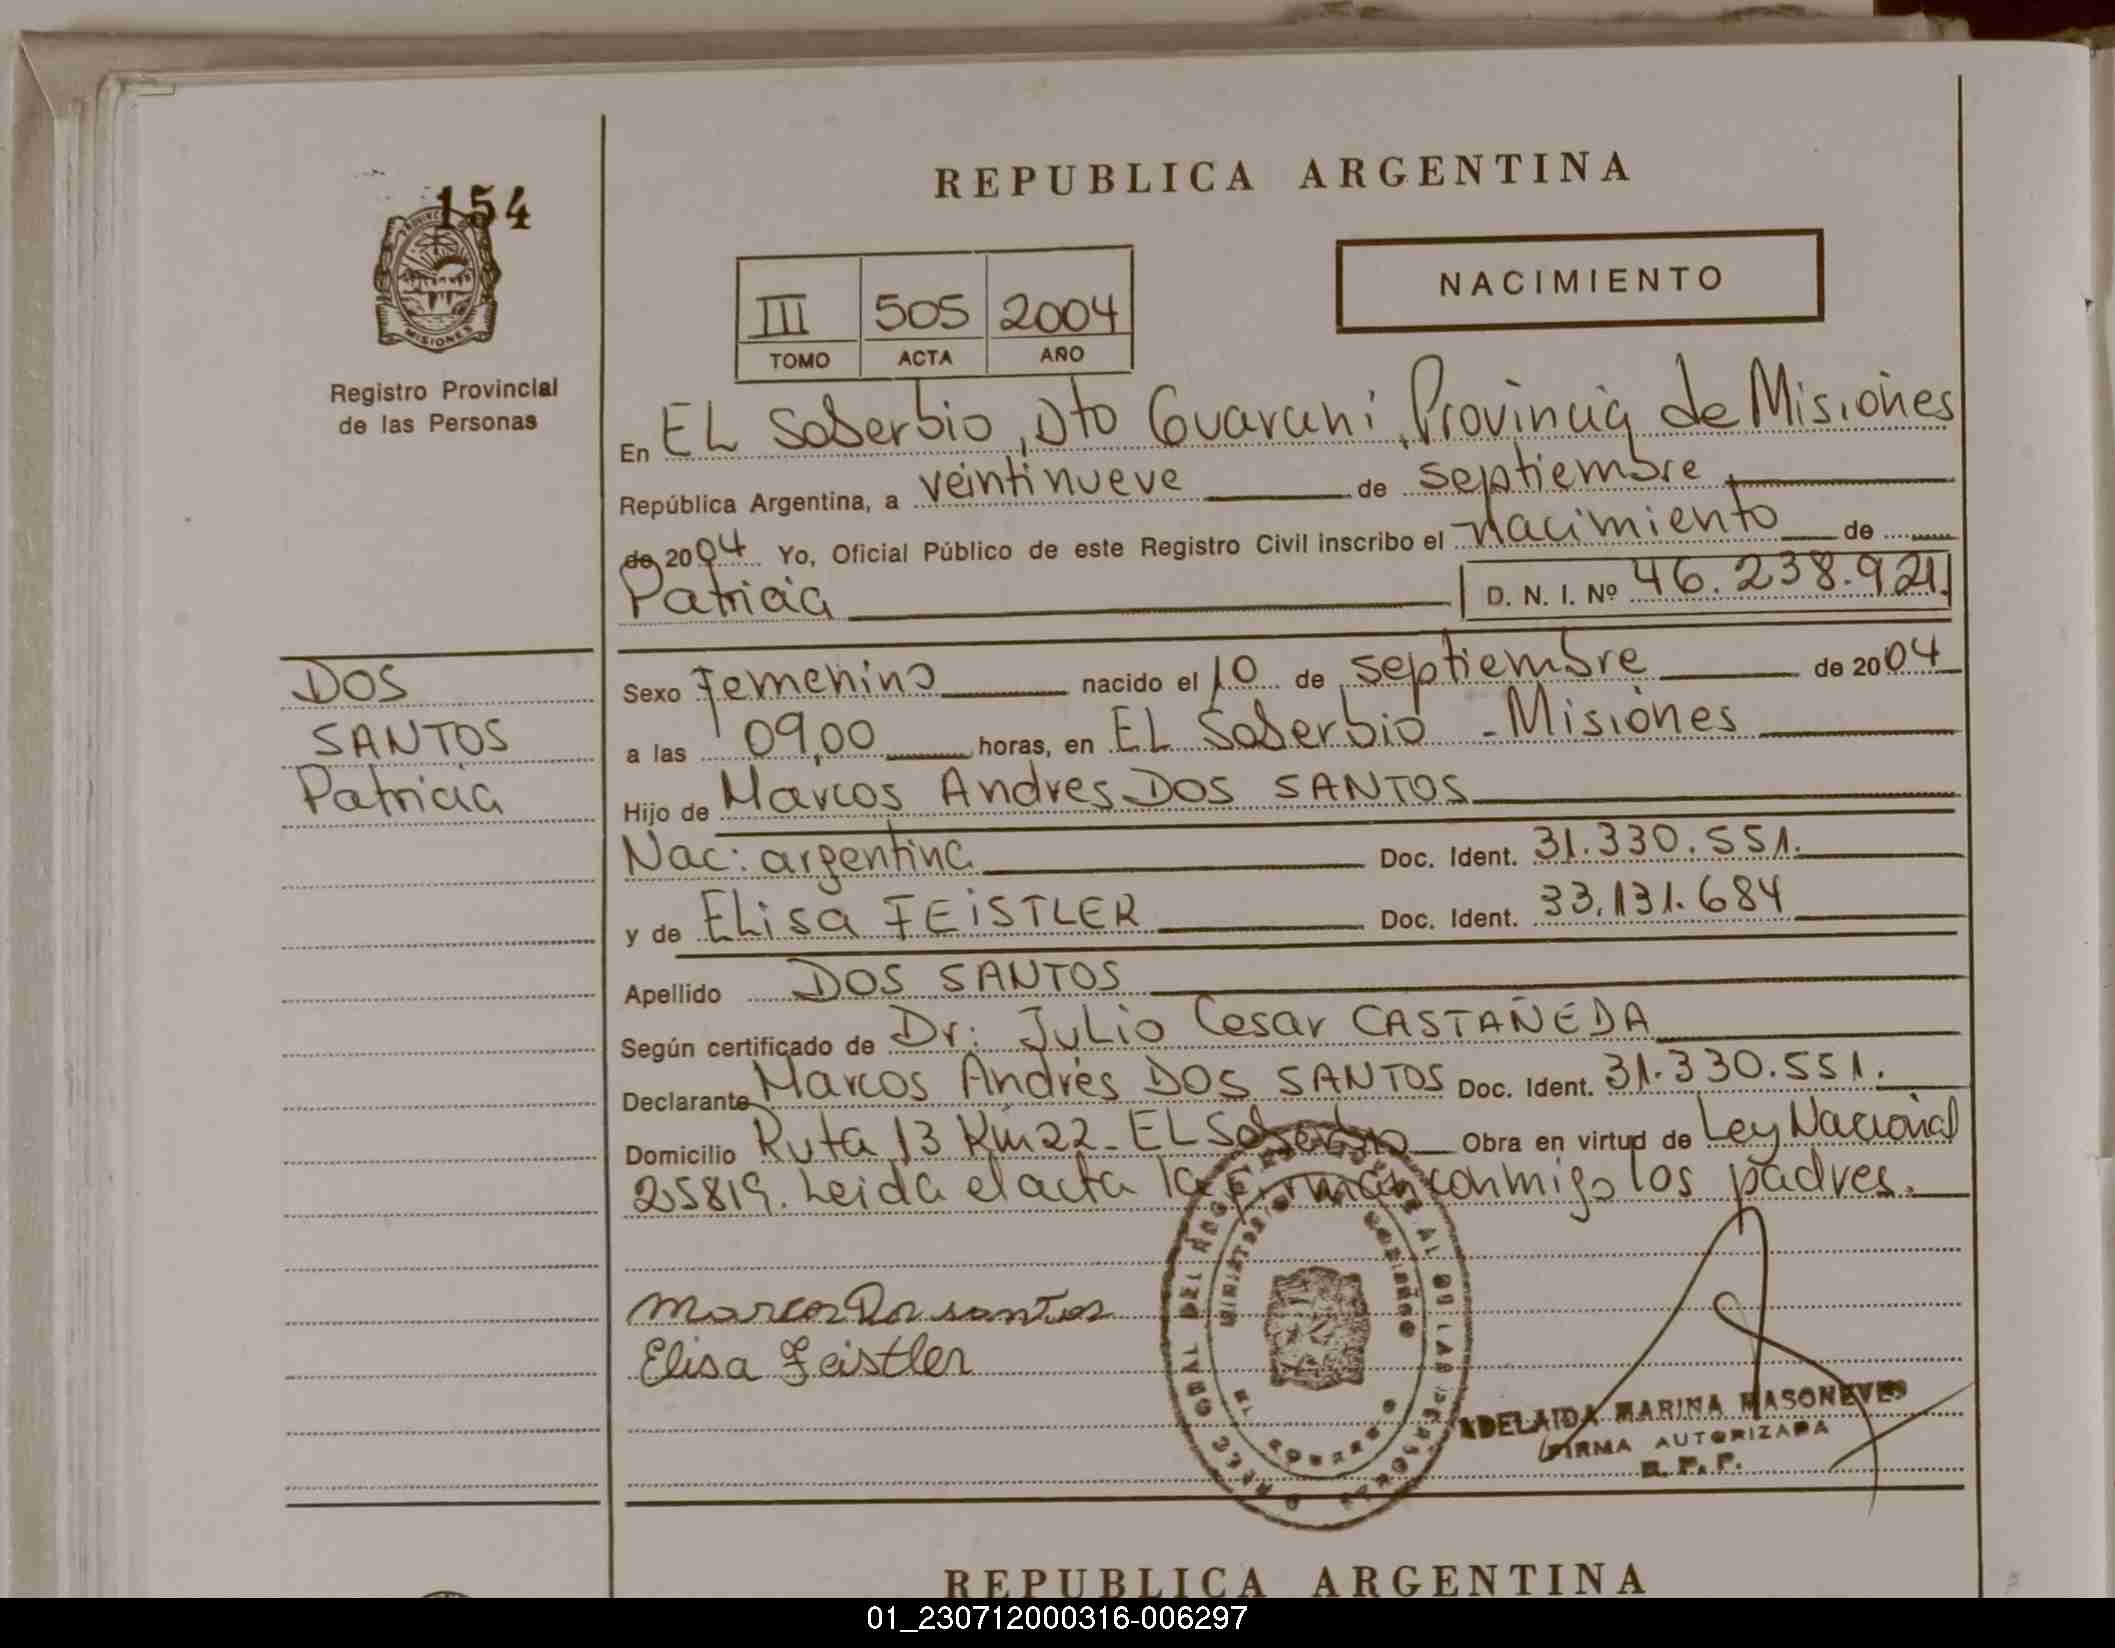 REPUBLICA ARGENTINA
154
NACIMIENTO
III 505 2004
TOMO ACTA AÑO
MISIONES
Registro Provincial
de las Personas
En EL Soberbio, Dto Guarani, Provincia de Misiones
República Argentina, a veintinueve de septiembre
de 2004 Yo, Oficial Público de este Registro Civil inscribo el nacimiento de
Patricia D. N. I. Nº 46.238.921.
DOS
SANTOS
Patricia
Sexo Femenino nacido el 10 de septiembre de 2004
a las 09,00 horas, en EL Soberbio - Misiones
Hijo de Marcos Andres DOS SANTOS
Nac: argentina Doc. Ident. 31.330.551.
y de ELisa FEiSTLER Doc. Ident. 33.131.684
Apellido DOS SANTOS
Según certificado de Dr: Julio Cesar CASTAÑEDA
Declarante Marcos Andrés DOS SANTOS Doc. Ident. 31.330.551.
Domicilio Ruta 13 Km 22 - EL Soberbio Obra en virtud de Ley Nacional
25819. Leida el acta la firman conmigo los padres.
Marcos Dos santos
Elisa Feistler
ADELAIDA MARINA MASONEVES
FIRMA AUTORIZADA
R. P. P.
REPUBLICA ARGENTINA
01_230712000316-006297